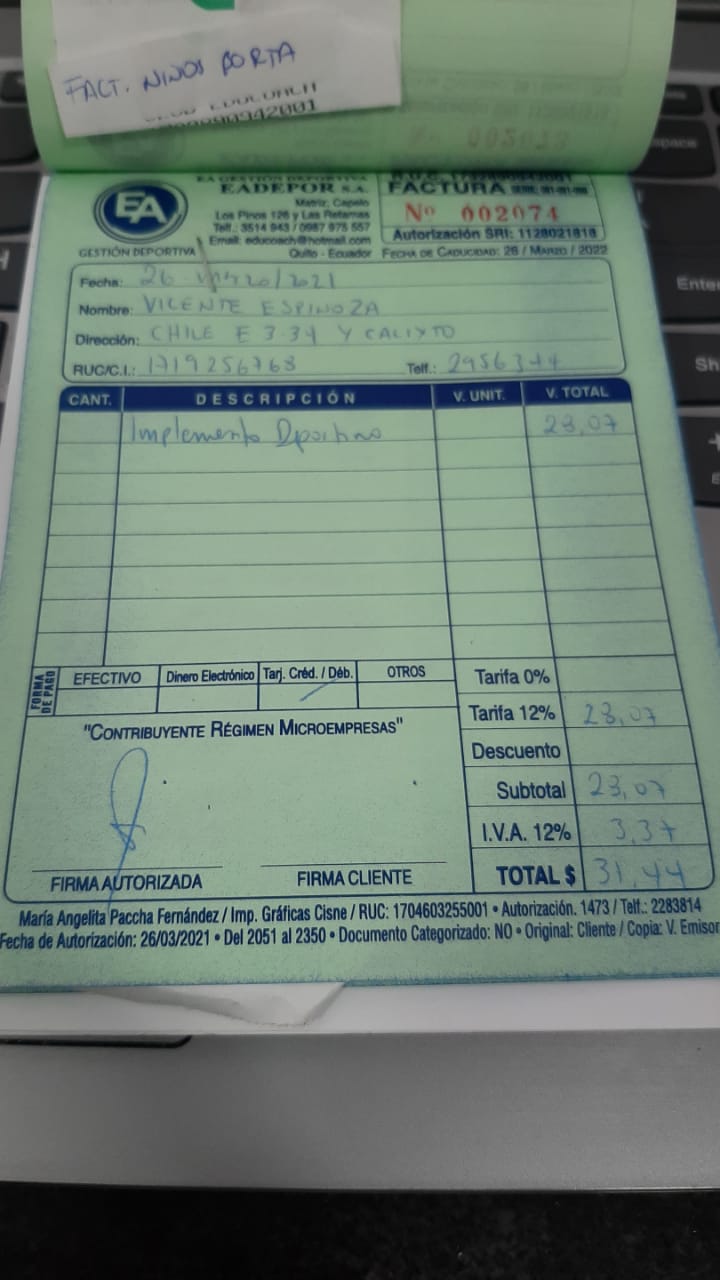 FACT. NINOS PORTA
90342001
EADEPOR S.A.
Matriz: Capelo
Los Pinos 126 y Las Retamas
Telf.: 3514 943 / 0987 975 557
Email: educoach@hotmail.com
Quito - Ecuador
EA
GESTIÓN DEPORTIVA
FACTURA
Nº 002074
Autorización SRI: 1128021818
FECHA DE CADUCIDAD: 26 / MARZO / 2022
Fecha: 26 - Marzo / 2021
Nombre: VICENTE ESPINOZA
Dirección: CHILE E 3-34 Y CALIXTO
RUC/C.I.: 1719256768 Telf.: 2956344
CANT. DESCRIPCIÓN V. UNIT. V. TOTAL
Implemento Dportivo 28,07
FORMA DE PAGO
EFECTIVO Dinero Electrónico Tarj. Créd. / Déb. OTROS
"CONTRIBUYENTE RÉGIMEN MICROEMPRESAS"
Tarifa 0%
Tarifa 12% 28,07
Descuento
Subtotal 28,07
I.V.A. 12% 3,37
TOTAL $ 31,44
FIRMA AUTORIZADA FIRMA CLIENTE
María Angelita Paccha Fernández / Imp. Gráficas Cisne / RUC: 1704603255001 • Autorización. 1473 / Telf.: 2283814
Fecha de Autorización: 26/03/2021 • Del 2051 al 2350 • Documento Categorizado: NO • Original: Cliente / Copia: V. Emisor